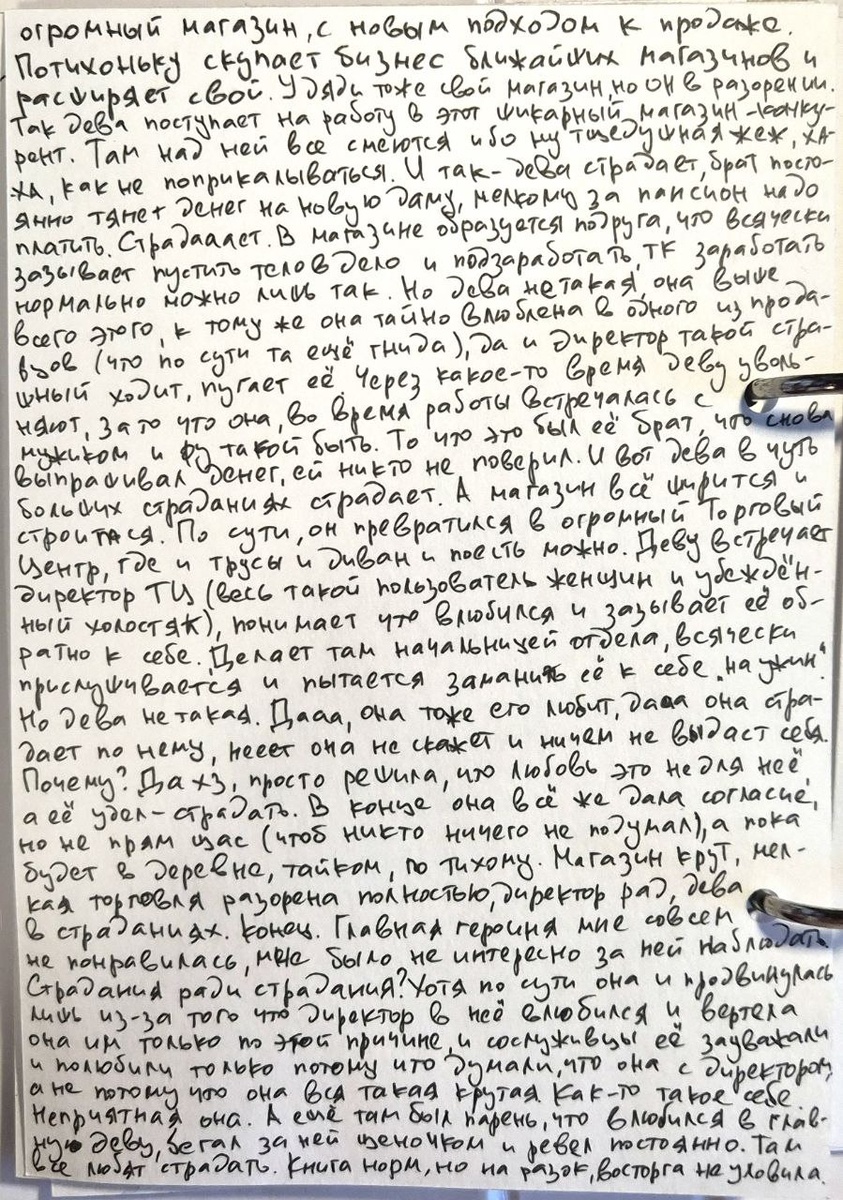 огромный магазин, с новым подходом к продаже.
Потихоньку скупает бизнес ближайших магазинов и
расширяет свой. У дяди тоже свой магазин, но он в разорении.
Так дева поступает на работу в этот шикарный магазин-конку-
рент. Там над ней все смеются ибо ну тщедушная же ж, ха-
ха, как не поприкалываться. И так-дева страдает, брат посто-
янно тянет денег на новую даму, мелкому за пансион надо
платить. Страдаааает. В магазине образуется подруга, что всячески
зазывает пустить тело в дело и подзаработать, тк заработать
нормально можно лишь так. Но дева нетакая, она выше
всего этого, к тому же она тайно влюблена в одного из прода-
вцов (что по сути та ещё гнида), да и директор такой стра-
шный ходит, пугает её. Через какое-то время деву уволь-
няют, за то что она, во время работы встречалась с
мужиком и фу такой быть. То что это был её брат, что снова
выпрашивал денег, ей никто не поверил. И вот дева в чуть
больших страданиях страдает. А магазин всё ширится и
строится. По сути, он превратился в огромный Торговый
Центр, где и трусы и диван и поесть можно. Деву встречает
директор ТЦ (весь такой пользователь женщин и убеждён-
ный холостяк), понимает что влюбился и зазывает её об-
ратно к себе. Делает там начальницей отдела, всячески
прислушивается и пытается заманить её к себе „на ужин".
Но дева не такая. Дааа, она тоже его любит, дааа она стра-
дает по нему, нееет она не скажет и ничем не выдаст себя.
Почему? Да хз, просто решила, что любовь это не для неё,
а её удел-страдать. В конце она всё же дала согласие,
но не прям щас (чтоб никто ничего не подумал), а пока
будет в деревне, тайком, по тихому. Магазин крут, мел-
кая торговля разорена полностью, директор рад, дева
в страданиях. Конец. Главная героиня мне совсем
не понравилась, мне было не интересно за ней наблюдать.
Страдания ради страдания? Хотя по сути она и продвинулась
лишь из-за того что директор в неё влюбился и вертела
она им только по этой причине, и сослуживцы её зауважали
и полюбили только потому что думали, что она с директором,
а не потому что она вся такая крутая. Как-то такое себе
Неприятная она. А ещё там был парень, что влюбился в глав-
ную деву, бегал за ней щеночком и ревел постоянно. Там
все любят страдать. Книга норм, но на разок, восторга не уловила.